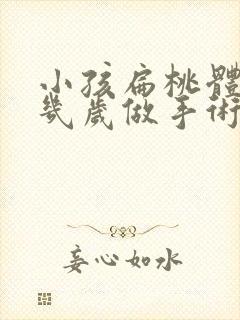 小孩扁桃體
幾歲做手術
妄心如水